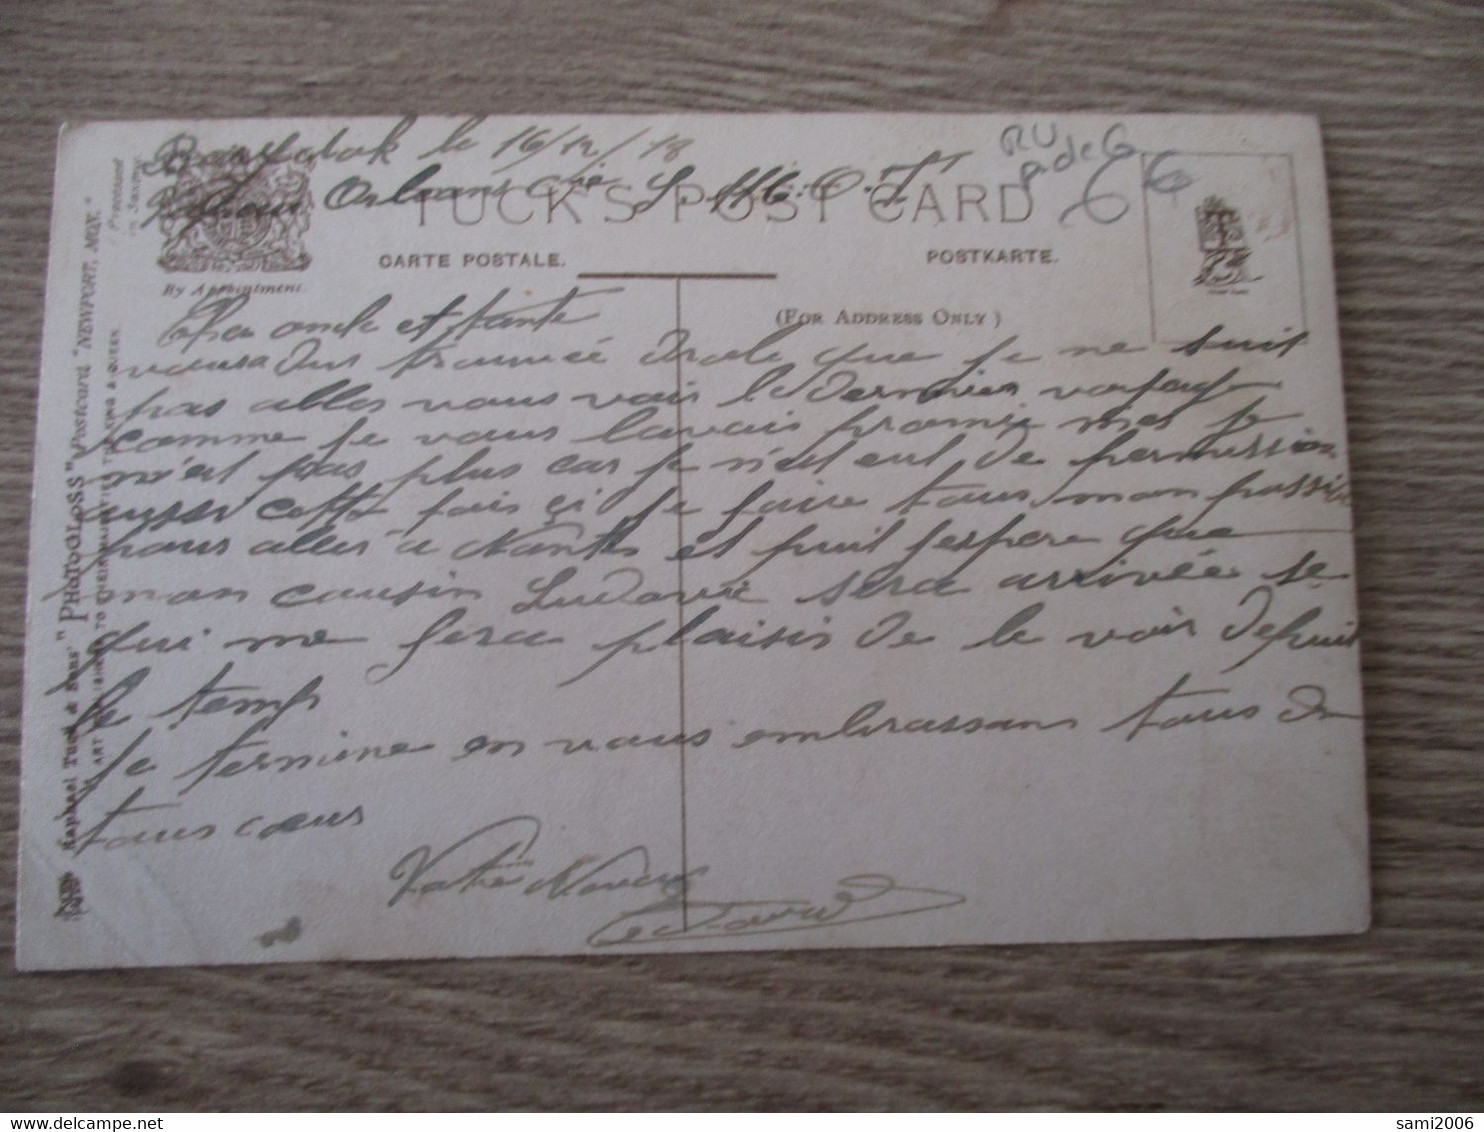 le 16/12/18
Orleans Cie
RU
P. de G
6 6
TUCK'S POST CARD
CARTE POSTALE.
POSTKARTE.
By Appointment.
(FOR ADDRESS ONLY)
Processed in Saxony.
Raphael Tuck & Sons' "PHOTOGLOSS" Postcard "NEWPORT, MON."
ART PUBLISHERS TO THEIR MAJESTIES THE KING & QUEEN.
Cher oncle et tante
vous a dus trouvée drole que je ne suit
pas aller vous voir le dernier voyage
comme je vous lavais promis mes je
n'est pas plus car je n'est eut de permission
aussi cette fois çi je faire tous mon possible
pour aller a Nantes et puit jespere que
mon cousin Ludovic sera arrivée se
qui me fera plaisir de le voir depuit
le temps
Je termine en vous embrassans tous de
tous cœur
Votre Neveu
sami2006